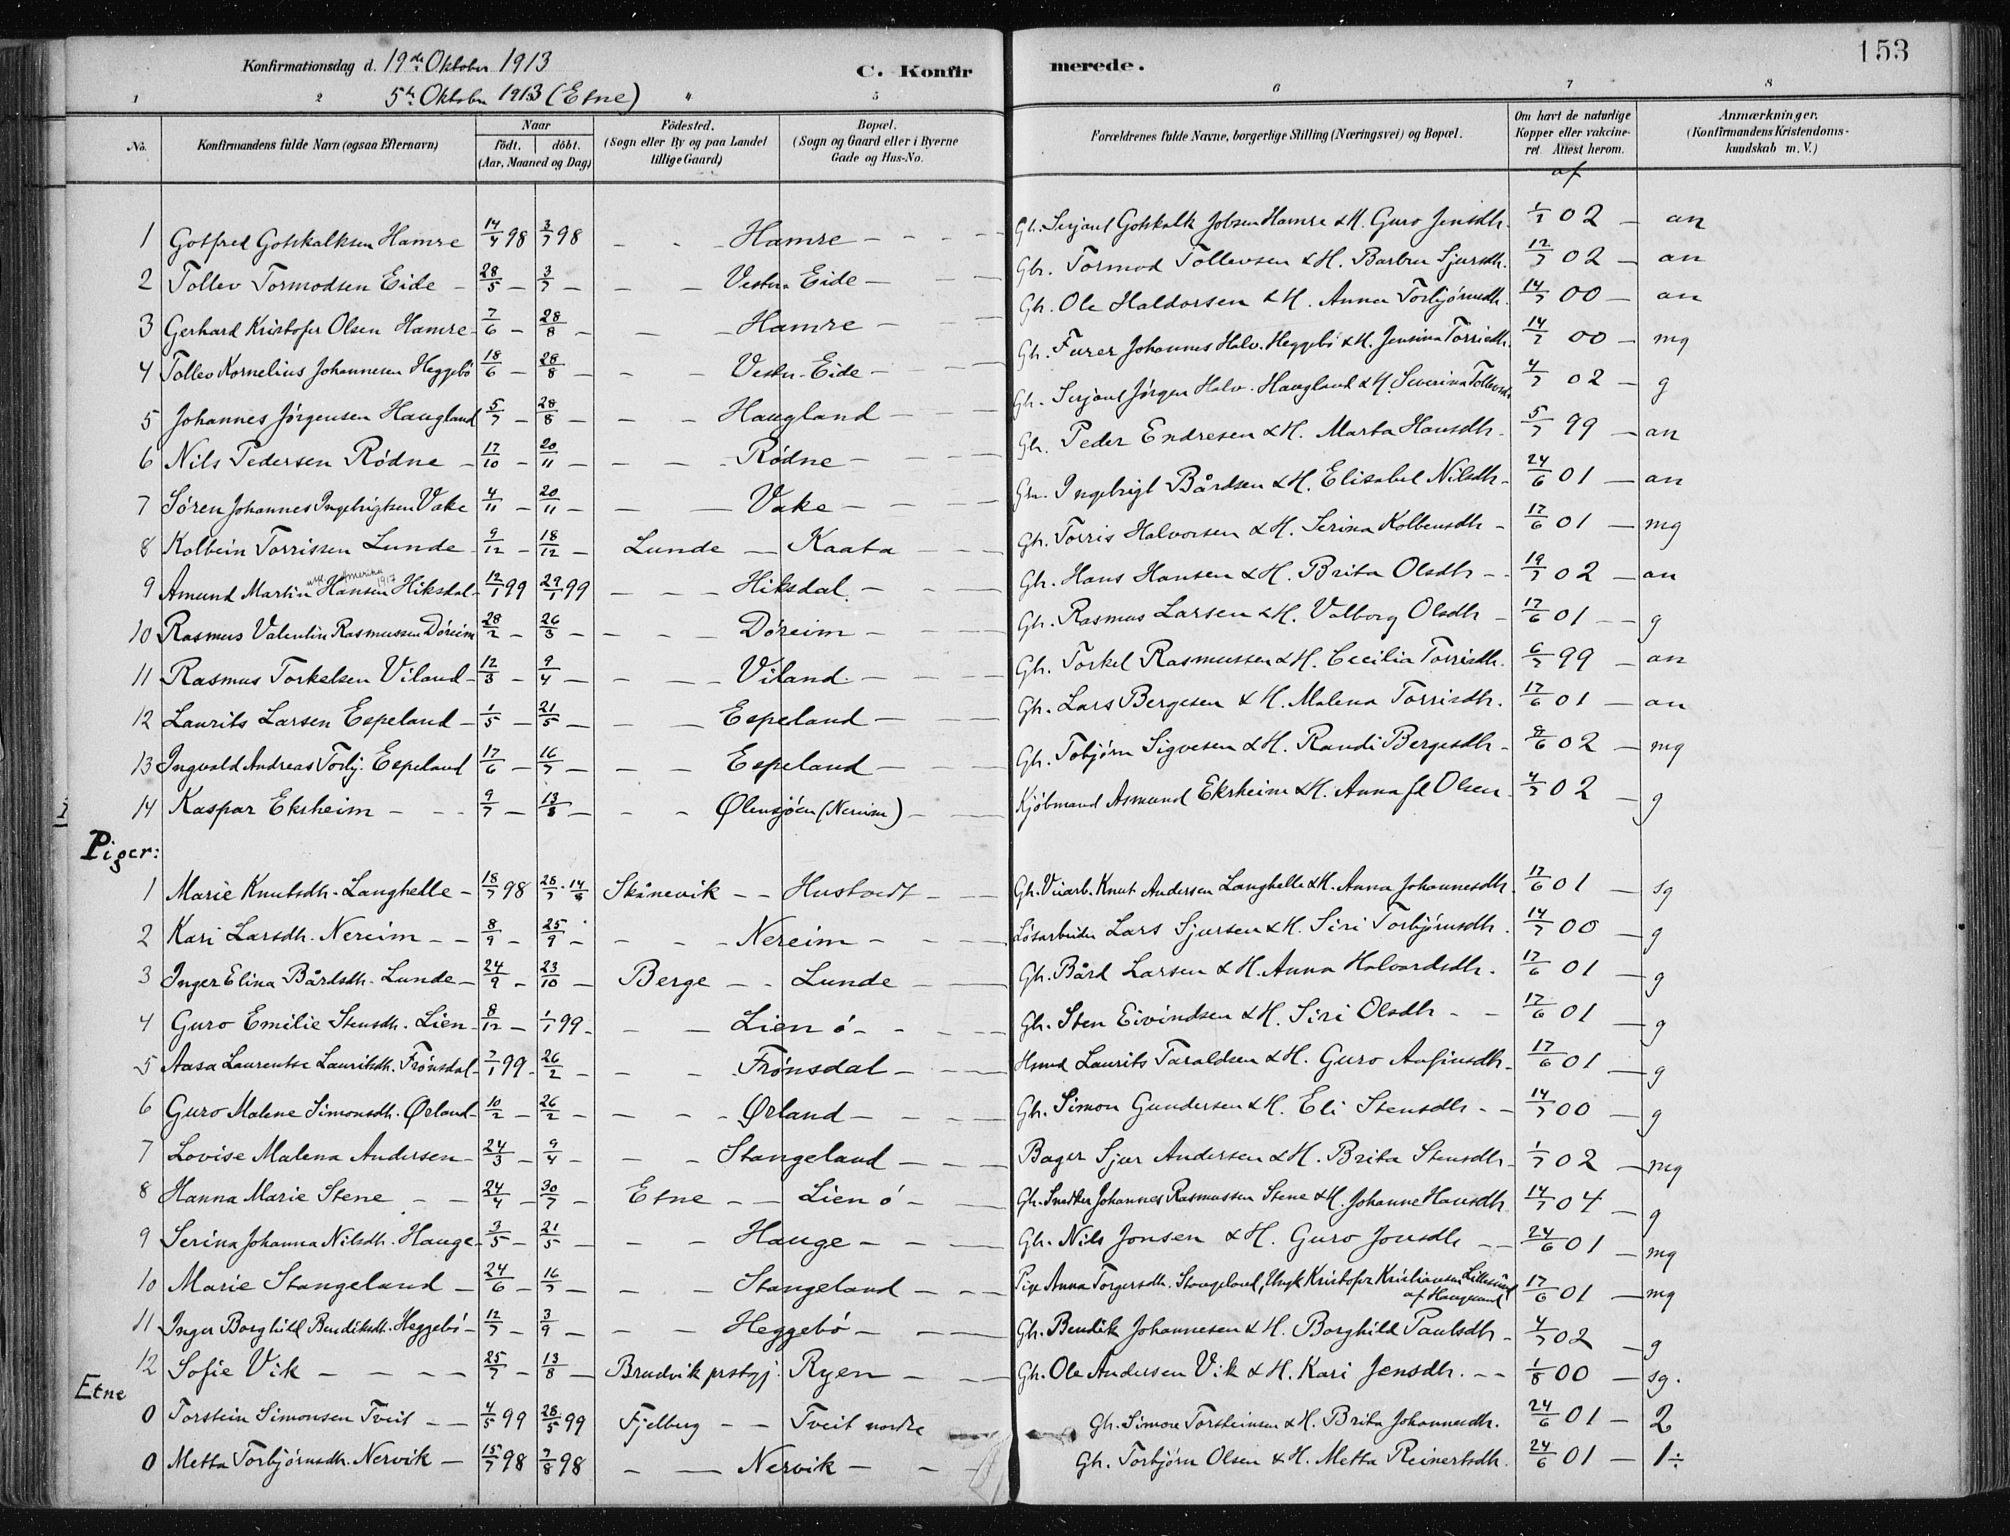 153
Konfirmationsdag d. 19de Oktober 1913
5te Oktober 1913 (Etne)
C. Konfirmerede.
1 2 4 5 6 7 8
No. Konfirmandens fulde Navn (ogsaa Efternavn) Naar födt. döbt. (Aar, Maaned og Dag) Födested. (Sogn eller By og paa Landet tillige Gaard) Bopæl. (Sogn og Gaard eller i Byerne Gade og Hus-No. Forældrenes fulde Navne, borgerlige Stilling (Næringsvei) og Bopæl. Om havt de naturlige Kopper eller vakcineret Attest herom. Anmærkninger. (Konfirmandens Kristendomskundskab m. V.)
af
1 Gotfred Gotskalksen Hamre 14/4 98 3/7 98 - - - Hamre - - - Gbr. Serjant Gotskalk Jobsen Hamre & H. Guro Jensdtr. 1/7 02 - an
2 Tollev Tormodsen Eide - 28/5 - 3/7 - - - Vestr. Eide - - - Gbr. Tormod Tollevsen & H. Barbra Sjursdtr. 12/7 02 - an
3 Gerhard Kristofer Olsen Hamre - 7/6 - 28/8 - - - Hamre - - - Gbr. Ole Haldorsen & H. Anna Torbjørnsdtr. 14/7 00 - an
4 Tollev Kornelius Johannesen Heggebö 18/6 - 28/8 - - - Vestr. Eide - - - Gbr. Furer Johannes Halv. Heggebö & H. Jensina Torrisdtr. 14/7 00 - mg
5 Johannes Jørgensen Haugland 5/7 - 28/8 - - - Haugland - - - Gbr. Serjant Jørgen Halv. Haugland & H. Severina Tollevsdtr. 4/7 02 - g
6 Nils Pedersen Rödne - 17/10 - 20/11 - - - Rödne - - - Gbr. Peder Endresen & H. Marta Hansdtr. 5/7 99 - an
7 Sören Johannes Ingebrigtsen Vake 4/11 - 20/11 - - - Vake - - - Gbr. Ingebrigt Bårdsen & H. Elisabet Nilsdtr. 24/6 01 - an
8 Kolbein Torrissen Lunde - 9/12 - 18/12 - Lunde - Kaata - - Gbr. Torris Halvorsen & H. Serina Kolbensdtr. - 17/6 01 - mg
9 Amund Martin Hansen Hiksdal - 12/1 99 29/1 99 - - - Hiksdal. - - Gbr. Hans Hansen & H. Brita Olsdtr. - - 19/7 02 - an
Amerika 1917
10 Rasmus Valentin Rasmussen Döreim 28/2 - 26/3 - - - - Döreim - - - Gbr. Rasmus Larsen & H. Valborg Olsdtr - 17/6 01 - - g
11 Rasmus Torkelsen Viland - 12/3 - 9/4 - - - - Viland. - - - Gbr. Torkel Rasmussen & H. Cecilia Torrisdtr. 6/7 99 - an
12 Laurits Larsen Espeland - 1/5 - 21/5 - - - Espeland - - - Gbr. Lars Bergesen & H. Malena Torrisdtr. 17/6 01 - an
13 Ingvald Andreas Torbj. Espeland 17/6 - 16/7 - - - Espeland - - - Gbr. Tobjörn Sigvesen & H. Randi Bergesdtr - 9/6 02 - mg
14 Kaspar Ekrheim - - - 9/7 - 13/8 - - - Ölensjöen (Nereim) - - - Kjöbmand Asmund Ekrheim & H. Anna f. Olsen - 4/7 02 - g
Piger:
1 Marie Knutsdtr. Langhelle - 18/7 98 28/7 - 14/8 Skånevik - - Hustoedt - - - Gbr. Veiarb. Knut Andersen Langhelle & H. Anna Johannesdtr. 17/6 01 - sg
2 Kari Larsdtr. Nereim - - 8/9 - 25/9 - - - - Nereim - - - Lösarbeider Lars Sjursen & H. Siri Torbjörnsdtr. 14/7 00 - g
3 Inger Elina Bårdsdtr. Lunde - 24/9 - 23/10 Berge - - Lunde - - - Gbr. Bård Larsen & H. Anna Halvardsdtr. 17/6 01 - g
4 Guro Emilie Stensdtr. Lien - 8/12 - 1/1 99 - - - Lien ö - - - Gbr. Sten Eivindsen & H. Siri Olsdtr - - 17/6 01 - g
5 Aasa Laurentse Lauritsdtr. Frönsdal - 7/1 99 - 26/2 - - - Frönsdal - - - Hsmd Laurits Taraldsen & H. Guro Anfinsdtr. 17/6 01 - g
6 Guro Malene Simonsdtr. Örland - 10/2 - 26/2 - - - Örland - - - Gbr. Simon Gundersen & H. Eli Stensdtr - - 14/7 00 - g
7 Lovise Malena Andersen - 24/3 - 9/4 - - - Stangeland - - - Bager Sjur Andersen & H. Brita Stensdtr. 1/7 02 - mg
8 Hanna Marie Stene - - 24/4 - 30/7 - Etne - - Lien ö - - Gbr. Snedker Johannes Rasmussen Stene & H. Johanne Hansdtr 14/7 04 - g
9 Serina Johanna Nilsdtr. Hauge - 3/5 - 21/5 - - - Hauge - - - Gbr. Nils Jonsen & H. Guro Jonsdtr - - 24/6 01 - mg
10 Marie Stangeland - 24/6 - 16/7 - - - Stangeland - - - Pige Anna Torgersdtr. Stangeland, Ungk Kristofer Kristiansen Lillesund af Haugesund 17/6 01 - mg
11 Inger Borghild Bendiksdtr. Heggebö - 12/7 - 3/9 - - - Heggebö - - - Gbr. Bendik Johannesen & H. Borghild Paulsdtr - 4/7 02 - g
12 Sofie Vik - - - - 25/7 - 13/8 - Brudvik prstgj. Ryen - - - Gbr. Ole Andersen Vik & H. Kari Jensdtr. - - 1/8 00 - sg.
Etne
0 Torstein Simonsen Tveit - - 4/5 99 28/5 99 Fjelberg - - Tveit nordre Gbr. Simon Torsteinsen & H. Brita Johannesdtr. 24/6 01 - 2
0 Metta Torbjörnsdtr. Nervik - 15/7 98 7/8 98 - - Nervik - - - Gbr. Torbjörn Olsen & H. Metta Reinertsdtr. 24/6 01 - 1÷